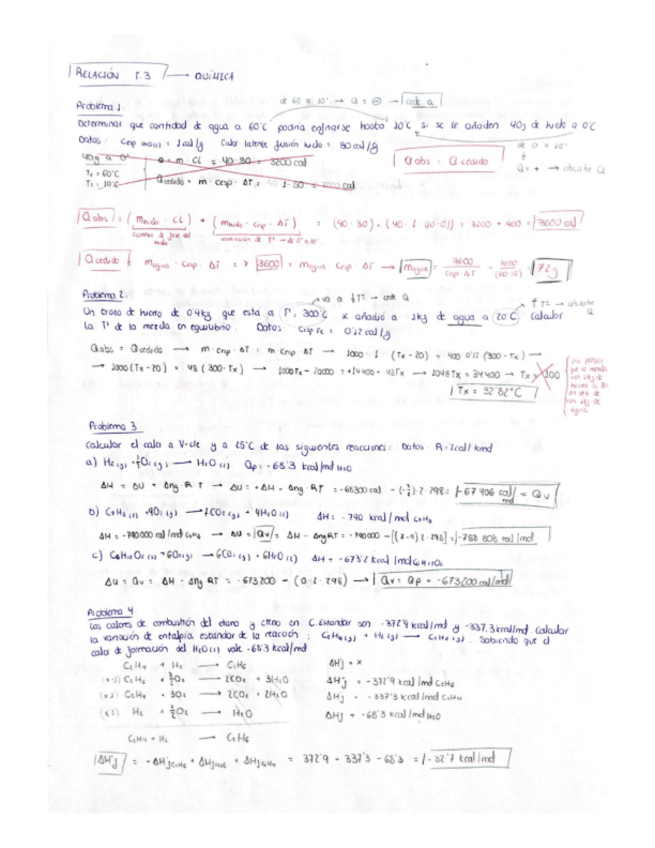 RELACIÓN T.3 → QUÍMICA
de 60 a 10° → Q = ⊖ → cede Q
Problema 1.
Determinar que cantidad de agua a 60°C podria enfriarse hasta 10°C si se le añaden 40g de hielo a 0°C
Datos: Cesp = 1 cal/g Calor latente fusión hielo = 80 cal/g
40g a 0°
T₀ = 60°C
T₁ = 10°C
Q = m · CL = 40 · 80 = 3200 cal
Q cedido = m · Cesp · ΔT =
Q abs = Q cedido
de 0 a 10°
Q = + → absorbe Q
Q abs = (mhielo · CL) + (mhielo · Cesp · ΔT) = (40 · 80) + (40 · 1 · (10-0)) = 3200 + 400 = 3600 cal
cambio de fase del hielo
variacion de Tª → de 0° a 10°
Q cedido = magua · Cesp · ΔT => 3600 = magua Cesp · ΔT → magua = 3600/Cesp·ΔT = 3600/(60-10) = 72g
va a ↓Tª → cede Q
↑Tª → absorbe Q
Problema 2.
Un trozo de hierro de 0'4kg que esta a Tª, 300°C se añadió a 1kg de agua a 20°C calcular
la Tª de la mezcla en equilibrio. Datos Cesp Fe = 0'12 cal/g
Qabs = Qcedido → m · Cesp · ΔT = m Cesp · ΔT → 1000 · 1 (Tx - 20) = 400 · 0'12 (300 - Tx) →
→ 1000 (Tx - 20) = 48 (300 - Tx) → 1000Tx - 20000 = +14400 - 48Tx → 1048Tx = 34400 → Tx = 300
Tx = 32'82°C
Problema 3
Calcular el calor a V=cte y a 25°C de las siguientes reacciones: Datos R = 2cal/kmol
a) H₂(g) + ½O₂(g) → H₂O(l) Qp = -68'3 kcal/mol H₂O
ΔH = ΔU + Δng · R · T → ΔU = +ΔH - Δng · RT = -68300 cal - (-3/2) · 2 · 298 = -67406 cal/mol = Qv
b) C₇H₈(l) + 9O₂(g) → 7CO₂(g) + 4H₂O(l) ΔH = -790 kcal/mol C₇H₈
ΔH = -790000 cal/mol C₇H₈ → ΔU = Qv = ΔH - ΔngRT = -790000 - [(7-9) · 2 · 298] = -788 808 cal/mol
c) C₆H₁₂O₆(s) + 6O₂(g) → 6CO₂(g) + 6H₂O(l) ΔH = -673'2 kcal/mol C₆H₁₂O₆
ΔU = Qv = ΔH - Δng RT = -673200 - (0 · 2 · 298) → Qv = Qp = -673200 cal/mol
Problema 4
Los calores de combustión del etano y eteno en C. Estandar son -372'9 kcal/mol y -337'3 kcal/mol. Calcular
la variación de entalpía estándar de la reacción: C₂H₄(g) + H₂(g) → C₂H₆(g). Sabiendo que el
calor de formación del H₂O(l) vale -68'3 kcal/mol
C₂H₄ + H₂ → C₂H₆ ΔHj = x
C₂H₆ + 7/2O₂ → 2CO₂ + 3H₂O ΔHj = -372'9 kcal/mol C₂H₆
C₂H₄ + 3O₂ → 2CO₂ + 2H₂O ΔHj = -337'3 kcal/mol C₂H₄
H₂ + ½O₂ → H₂O ΔHj = -68'3 kcal/mol H₂O
C₂H₄ + H₂ → C₂H₆
ΔHj = -ΔHj C₂H₆ + ΔHj H₂O + ΔHj C₂H₄ = 372'9 - 337'3 - 68'3 = -32'7 kcal/mol